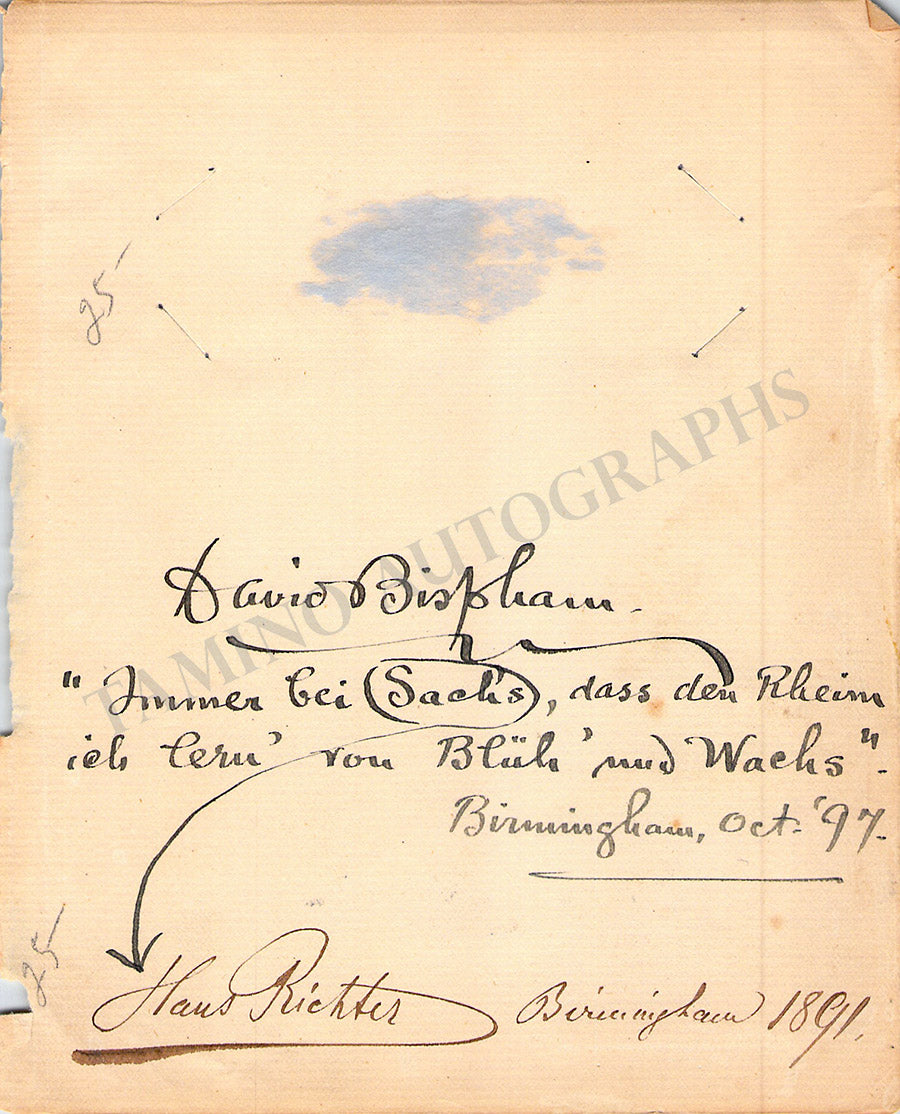 25-
TAMINO AUTOGRAPHS
David Bispham.
"Immer bei Sachs, dass den Rheim
ich lern' von Blüh' und Wachs".
Birmingham, Oct. '97.
25-
Hans Richter Birmingham 1891.